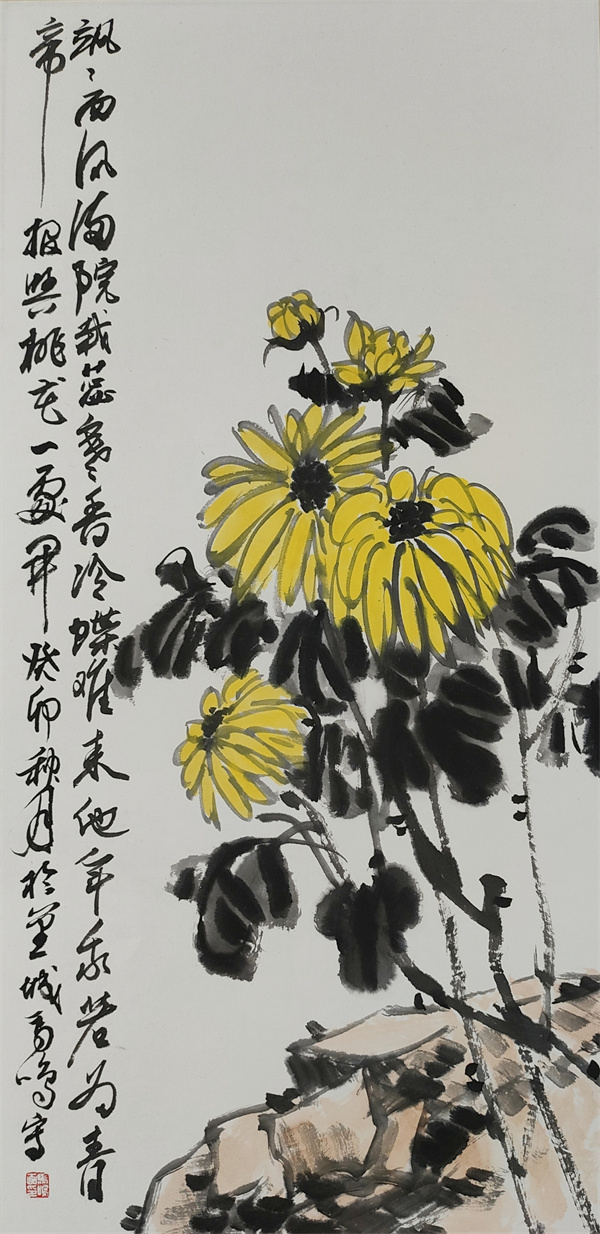 飒〻西风满院栽蕊寒香冷蝶难来他年我若为青
帝报与桃花一处开癸卯秋月於